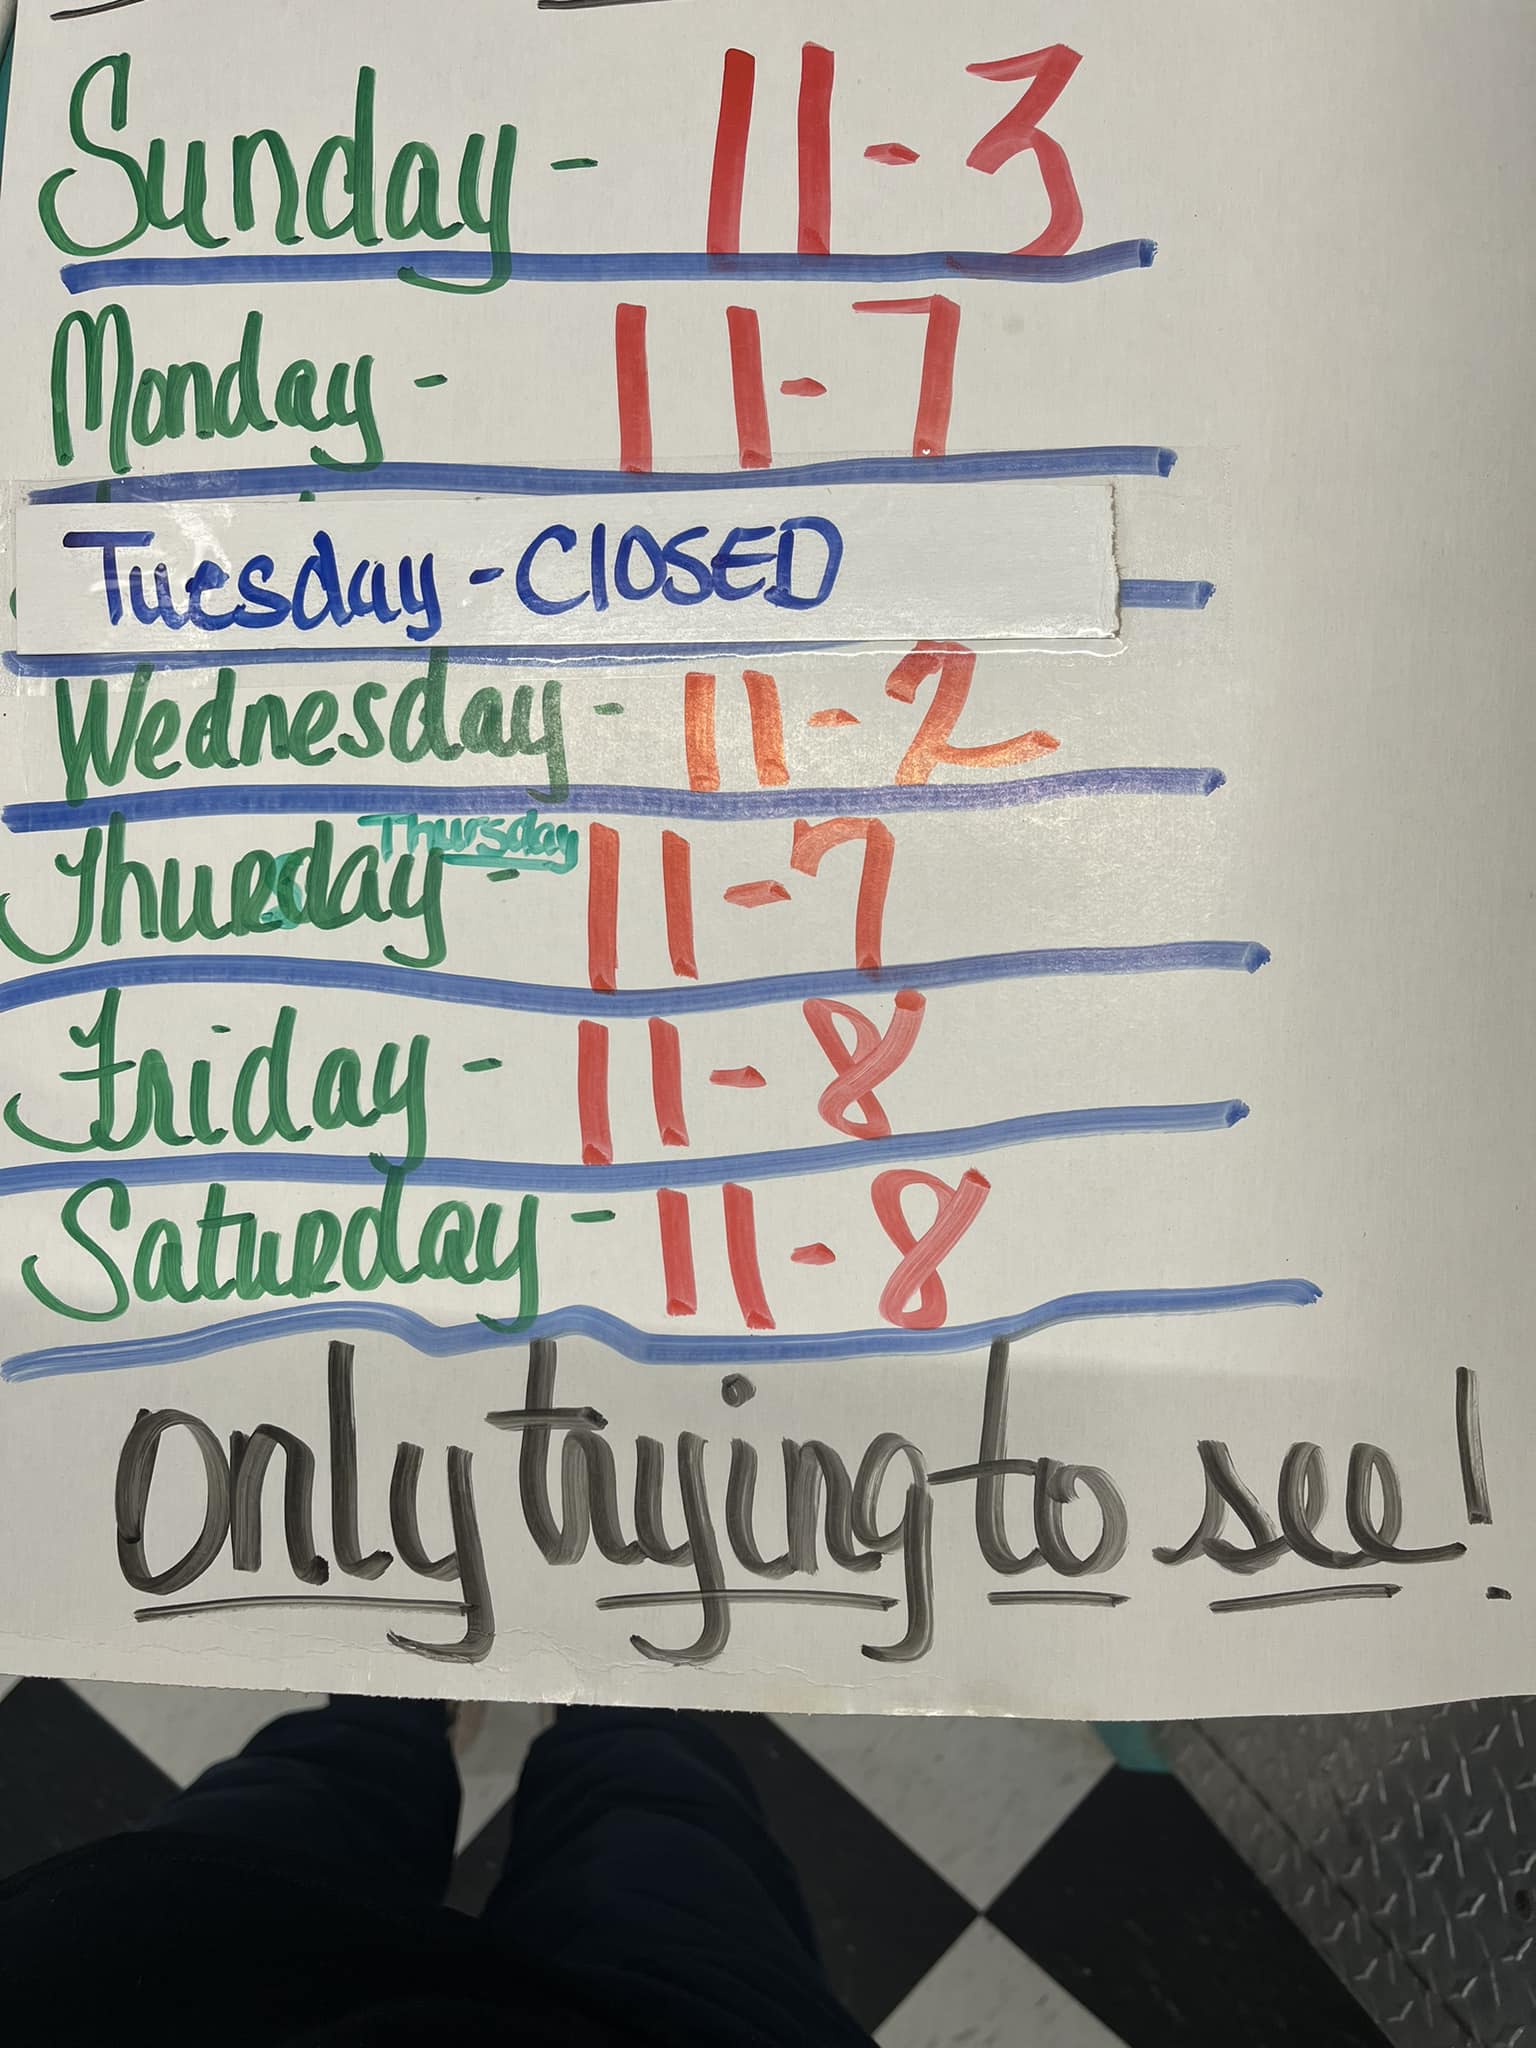 Sunday - 11-3
Monday - 11-7
Tuesday - CLOSED
Wednesday - 11-2
Thursday
Thursday - 11-7
Friday - 11-8
Saturday - 11-8
only trying to see!